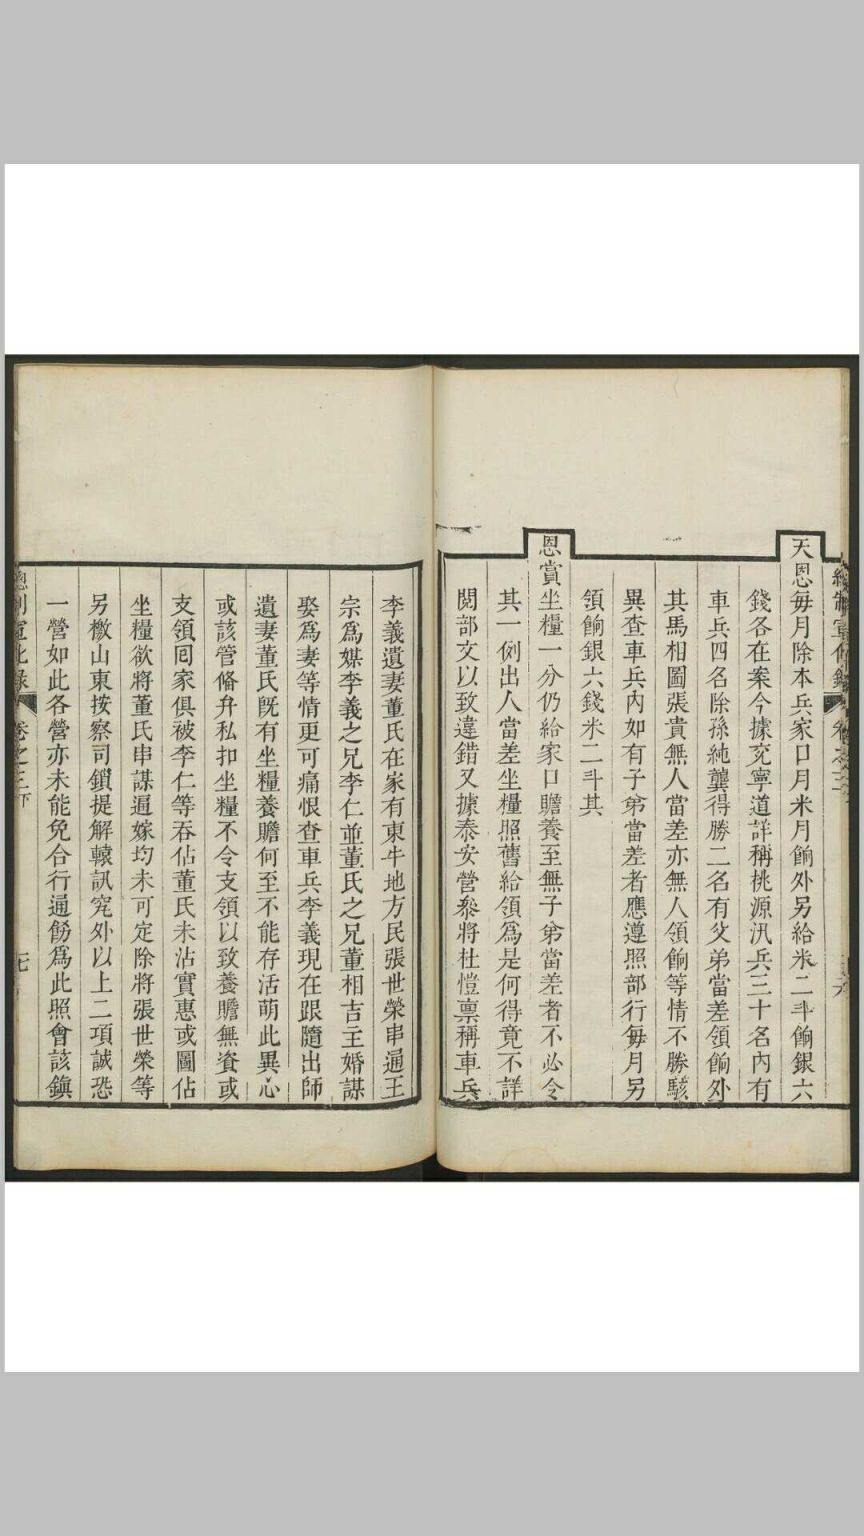 天恩每月除本兵家口月米月餉外另給米二斗餉銀六
錢各在案今據兖寧道詳稱桃源汛兵三十名內有
車兵四名除孫純龔得勝二名有父弟當差領餉外
其馬相圖張貴無人當差亦無人領餉等情不勝駭
異查車兵內如有子弟當差者應遵照部行每月另
領餉銀六錢米二斗其
恩賞坐糧一分仍給家口贍養至無子弟當差者不必令
其一例出人當差坐糧照舊給領爲是何得竟不詳
閱部文以致違錯又據泰安營叅將杜愷禀稱車兵
李義遺妻董氏在家有東牛地方民張世榮串通王
宗爲媒李義之兄李仁並董氏之兄董相吉主婚謀
娶爲妻等情更可痛恨查車兵李義現在跟隨出師
遺妻董氏既有坐糧養贍何至不能存活萌此異心
或該管偹弁私扣坐糧不令支領以致養贍無資或
支領囘家俱被李仁等吞佔董氏未沾實惠或圖佔
坐糧欲將董氏串謀逼嫁均未可定除將張世榮等
另檄山東按察司鎖提解轅訊究外以上二項誠恐
一營如此各營亦未能免合行通飭爲此照會該鎮
總制宣化錄 卷之三下